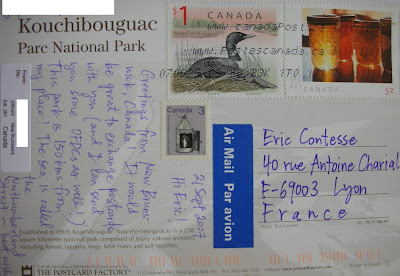 Kouchibouguac
Parc National Park
$1 CANADA
CANADA
$2
www.canadaPost
www.Postescanada.ca
CANADA 3
21 Sept 2007
Hi Eric!
Greetings from New Bruns-
wick, Canada! I would
be great to exchange postcards
with you (and I can send
you some OFDCs as well!)
This park is 150 kms from
my place! The sea is called
the
Northumberland
Strait
From:
Canada
Air Mail Par avion
Eric Contesse
40 rue Antoine Charial
F-69003 Lyon
France
Established in 1969, Kouchibouguac is a 238
square kilometre national park comprised of many natural wonders
including forests, lagoons, bogs, tidal rivers and salt marshes
THE POSTCARD FACTORY